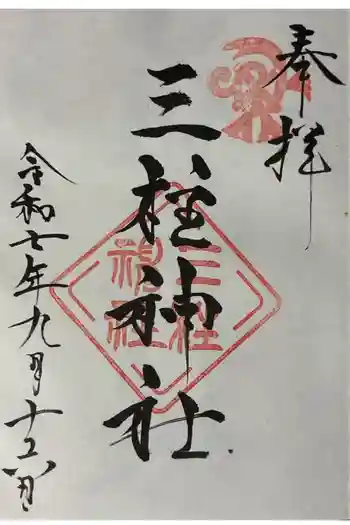 奉拝
三柱神社
三柱
神社
令和七年九月十五日